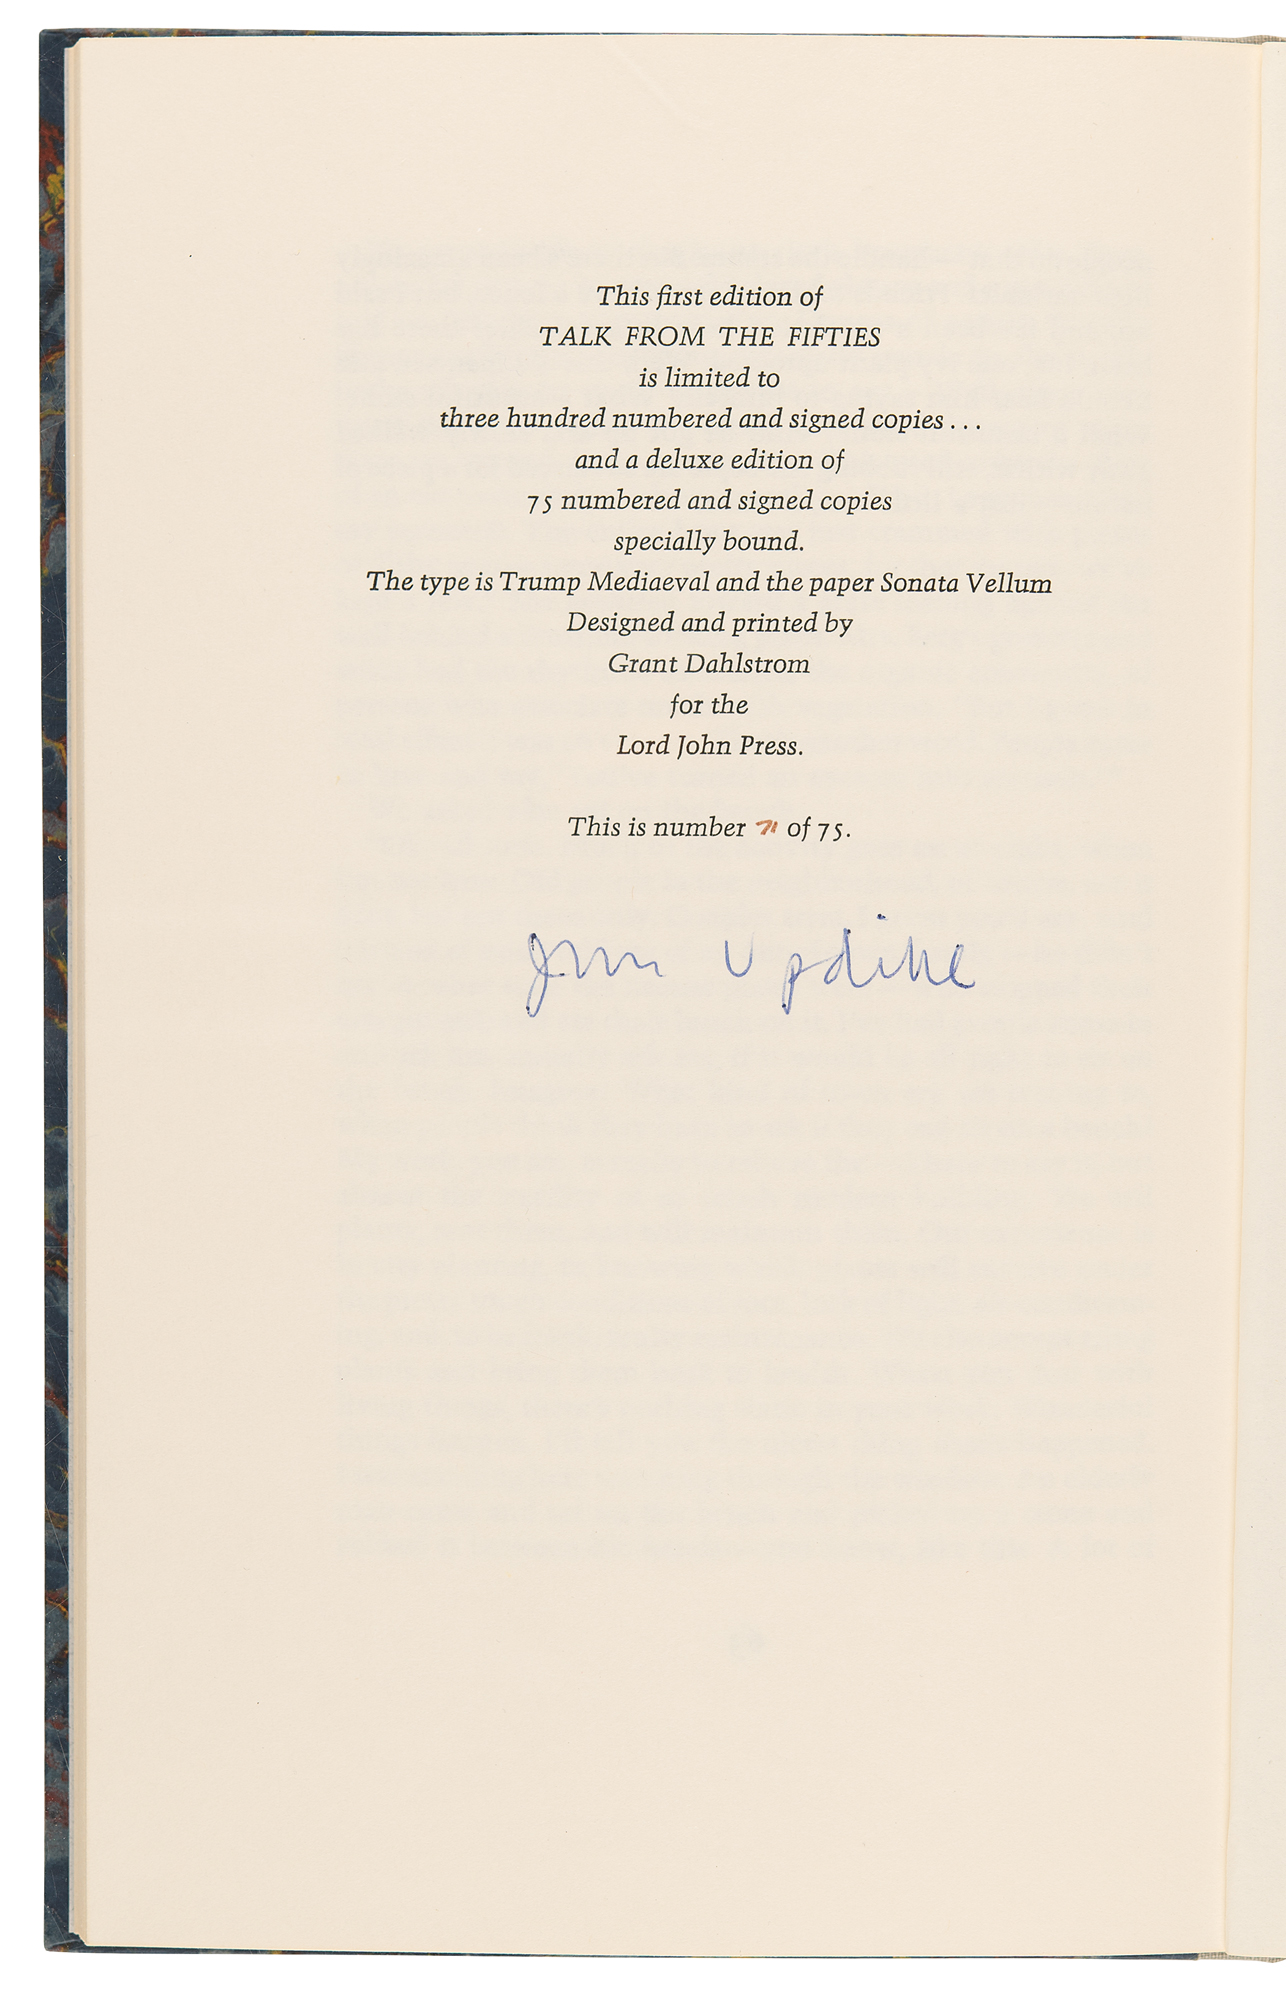 This first edition of
TALK FROM THE FIFTIES
is limited to
three hundred numbered and signed copies . . .
and a deluxe edition of
75 numbered and signed copies
specially bound.
The type is Trump Mediaeval and the paper Sonata Vellum
Designed and printed by
Grant Dahlstrom
for the
Lord John Press.
This is number 71 of 75.
John Updike